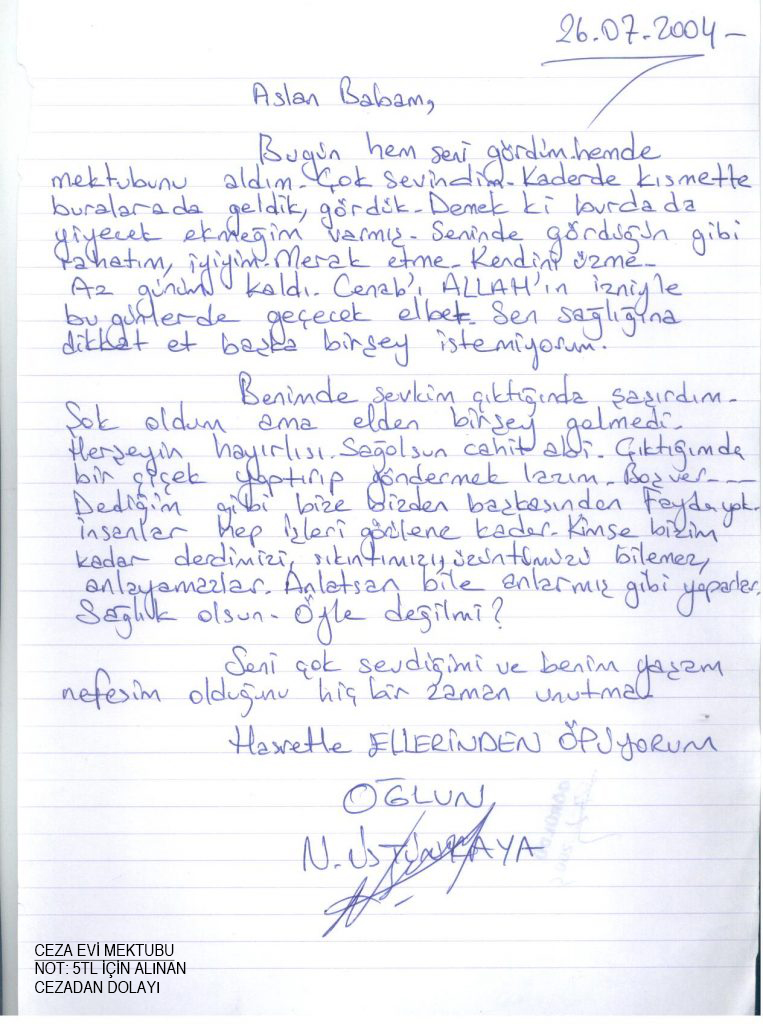 26.07.2004-
Aslan Babam,
Bugün hem seni gördüm.hemde
mektubunu aldım. Çok sevindim. Kaderde kısmette
buralarada geldik, gördük. Demek ki burda da
yiyecek ekmeğim varmış. Seninde gördüğün gibi
rahatım, iyiyim. Merak etme. Kendini üzme.
Az günüm kaldı. Cenab'ı ALLAH'ın izniyle
bu günlerde geçecek elbet. Sen sağlığına
dikkat et başka birşey istemiyorum.
Benimde sevkim çıktığında şaşırdım.
Şok oldum ama elden birşey gelmedi.
Herşeyin hayırlısı. Sağolsun cahit abi. Çıktığımda
bir çiçek yaptırıp göndermek lazım. Boşver----
Dediğim gibi bize bizden başkasından fayda yok.
insanlar hep işleri görülene kadar. Kimse bizim
kadar derdimizi, sıkıntımızı, üzüntümüzü bilemez,
anlayamazlar. Anlatsan bile anlarmış gibi yaparlar.
Sağlık olsun. Öyle değilmi?
Seni çok sevdiğimi ve benim yaşam
nefesim olduğunu hiç bir zaman unutma.
Hasretle ELLERİNDEN ÖPÜYORUM
OĞLUN
N. ÜSTÜNKAYA
CEZA EVİ MEKTUBU
NOT: 5TL İÇİN ALINAN
CEZADAN DOLAYI